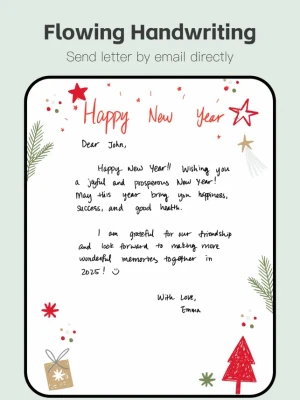 Flowing Handwriting
Send letter by email directly
Happy New Year
Dear John,
Happy New Year!! Wishing you
a joyful and prosperous New Year!
May this year bring you happiness,
success, and good health.
I am grateful for our friendship
and look forward to making more
wonderful memories together in
2025! ☺
With Love,
Emma